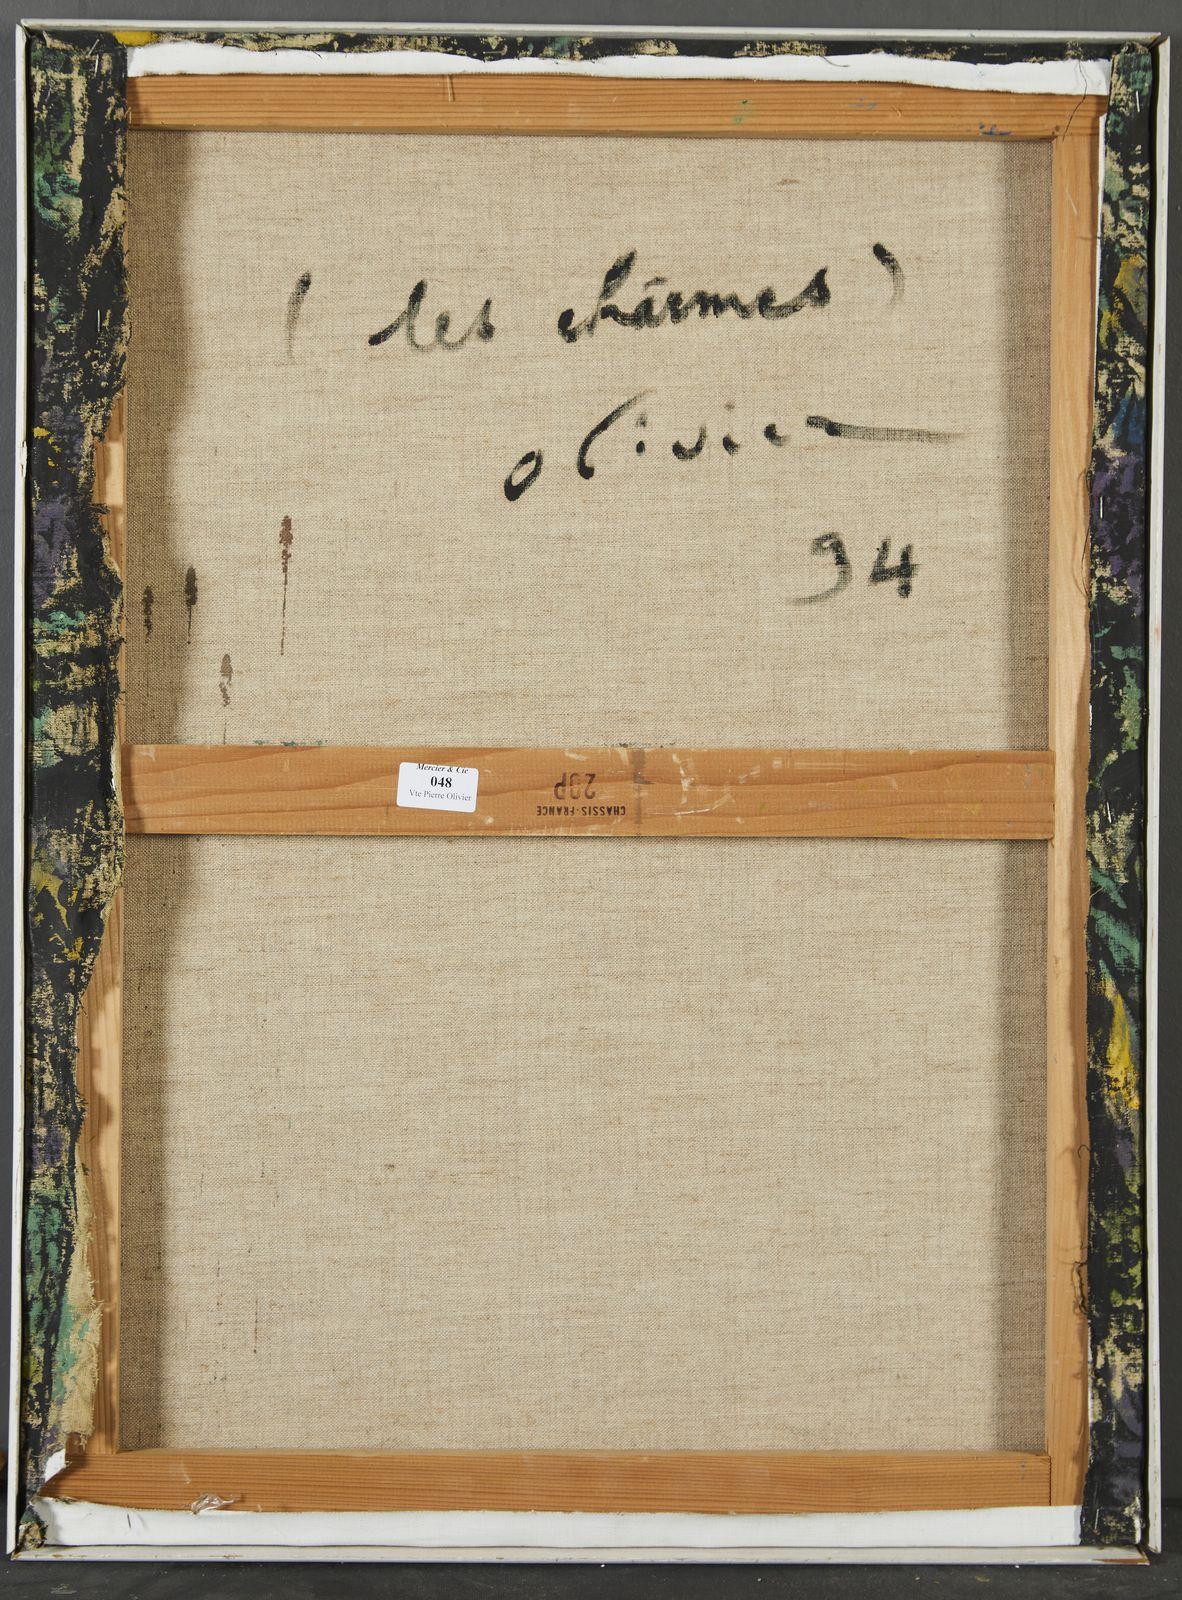 ( les charmes )
olivier
94
Mercier & Cie
048
Vte Pierre Olivier
CHASSIS-FRANCE
20P